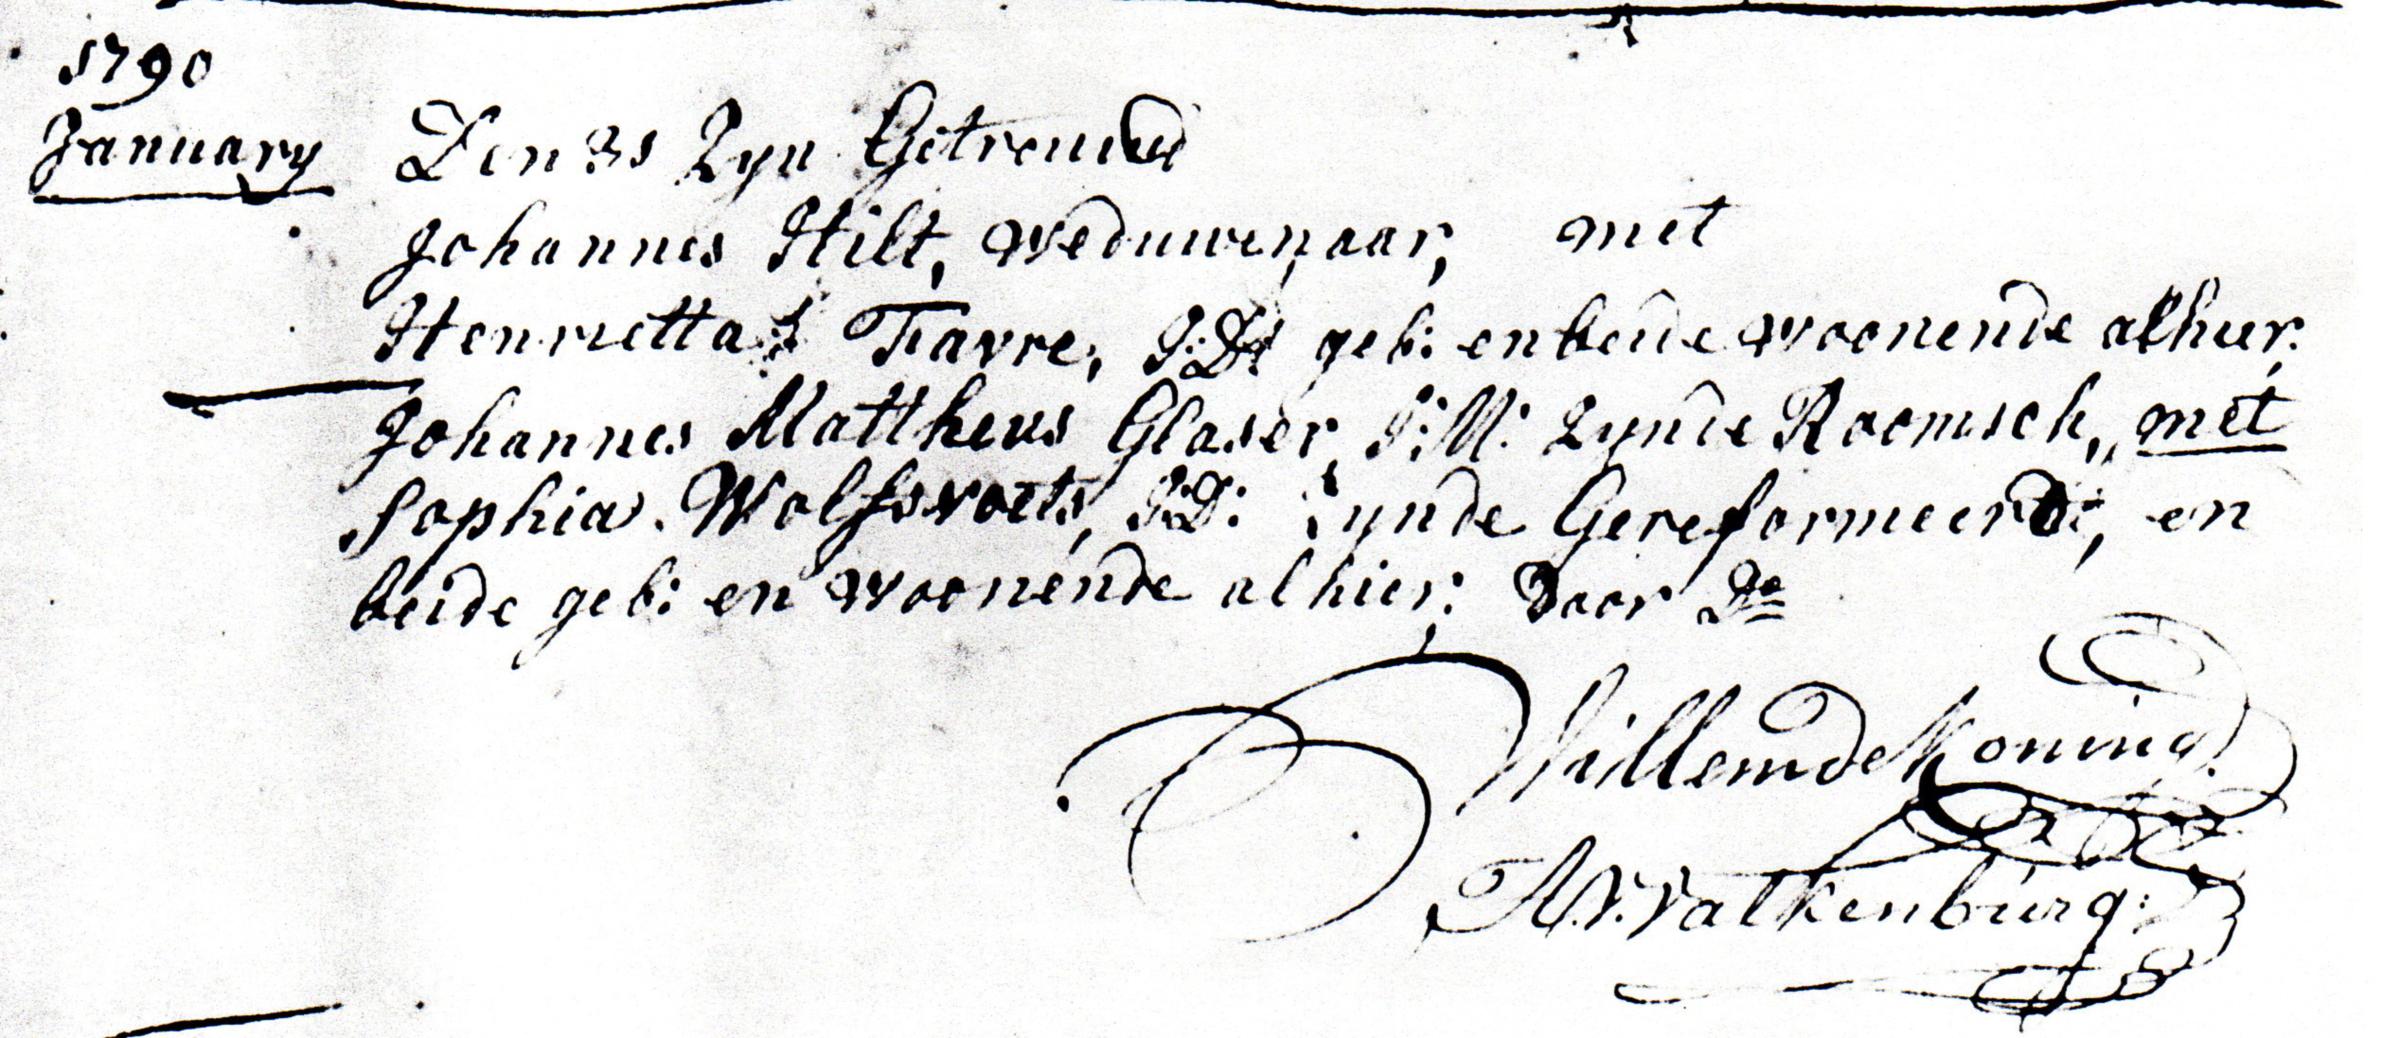 1790
January
Den 31 Zyn Getrouwd
Johannes Hilt, weduwenaar, met
Henrietta Favre, J:D: geb: en beide woonende alhier.
Johannes Mattheus Glaser, J:M: zynde Roomsch, met
Sophia Wolfsvoets, J:D: zynde Gereformeerd, en
beide geb: en woonende alhier; Door Ds
Willem de Koning
A.V. Valkenburg.